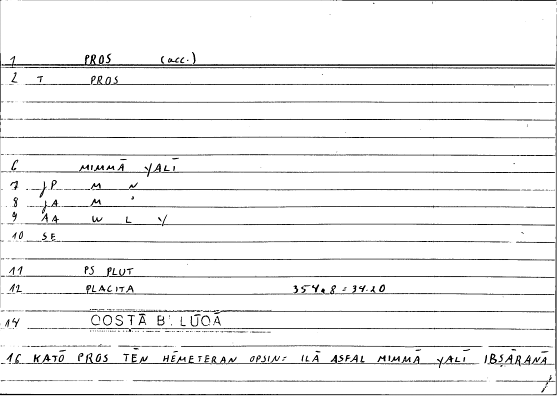 1 PROS (acc.)
2 T PROS
6 MIMMĀ YALĪ
7 jP M N
8 jA M '
9 ĀA W L Y
10 SE
11 PS PLUT
12 PLACITA 354.8 = 34.20
14 QOSTĀ B. LŪQĀ
16 KATŌ PROS TĒN HĒMETERAN OPSIN: ILĀ ASFAL MIMMĀ YALĪ IBṢĀRANĀ